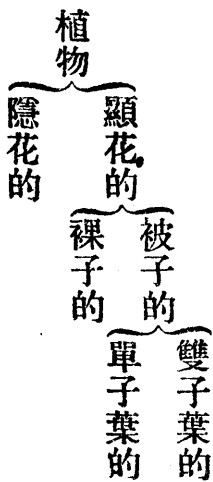 植物
顯花的
隱花的
被子的
裸子的
雙子葉的
單子葉的